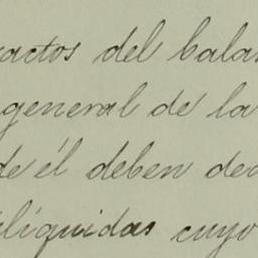 actos del bala
general de la
de él deben de
líquidas cuyo